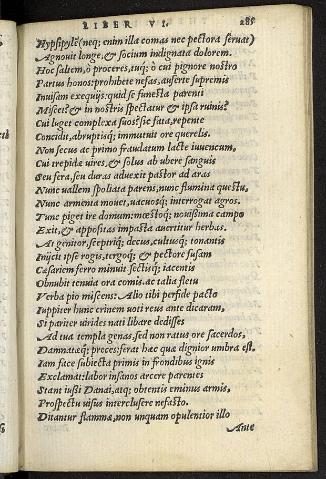 LIBER VI. 285
Hypsipyle (neq; enim illa comas nec pectora seruat)
Agnouit longe, & socium indignata dolorem.
Hoc saltem, ô proceres, tuq; ô cui pignore nostro
Partus honos: prohibete nefas, auferte supremis
Inuisam exequijs: quid se funesta parenti
Miscet? & in nostris spectatur & ipsa ruinis?
Cui luget complexa suos? sic fata, repente
Concidit, abruptisq; immutuit ore querelis.
Non secus ac primo fraudatum lacte iuuencum,
Cui trepidæ uires, & solus ab ubere sanguis
Seu fera, seu duras aduexit pastor ad aras
Nunc uallem spoliata parens, nunc flumina questu,
Nunc armenta mouet, uacuosq; interrogat agros.
Tunc piget ire domum: mœstoq; nouissima campo
Exit, & appositas impasta auertitur herbas.
At genitor, sceptriq; decus, cultusq; tonantis
Inijcit ipse rogis, tergoq; & pectore fusam
Cæsariem ferro minuit sectisq; iacentis
Obnubit tenuia ora comis. ac talia fletu
Verba pio miscens: Alio tibi perfide pacto
Iuppiter hunc crinem uoti reus ante dicaram,
Si pariter uirides nati libare dedisses
Ad tua templa genas, sed non ratus ore sacerdos,
Damnatæq; preces: ferat hæc quæ dignior umbra est.
Iam face subiecta primis in frondibus ignis
Exclamat: labor insanos arcere parentes
Stant iussi Danai, atq; obtentis eminus armis,
Prospectu uisus interclusere nefasto.
Ditantur flammæ, non unquam opulentior illo
Ante